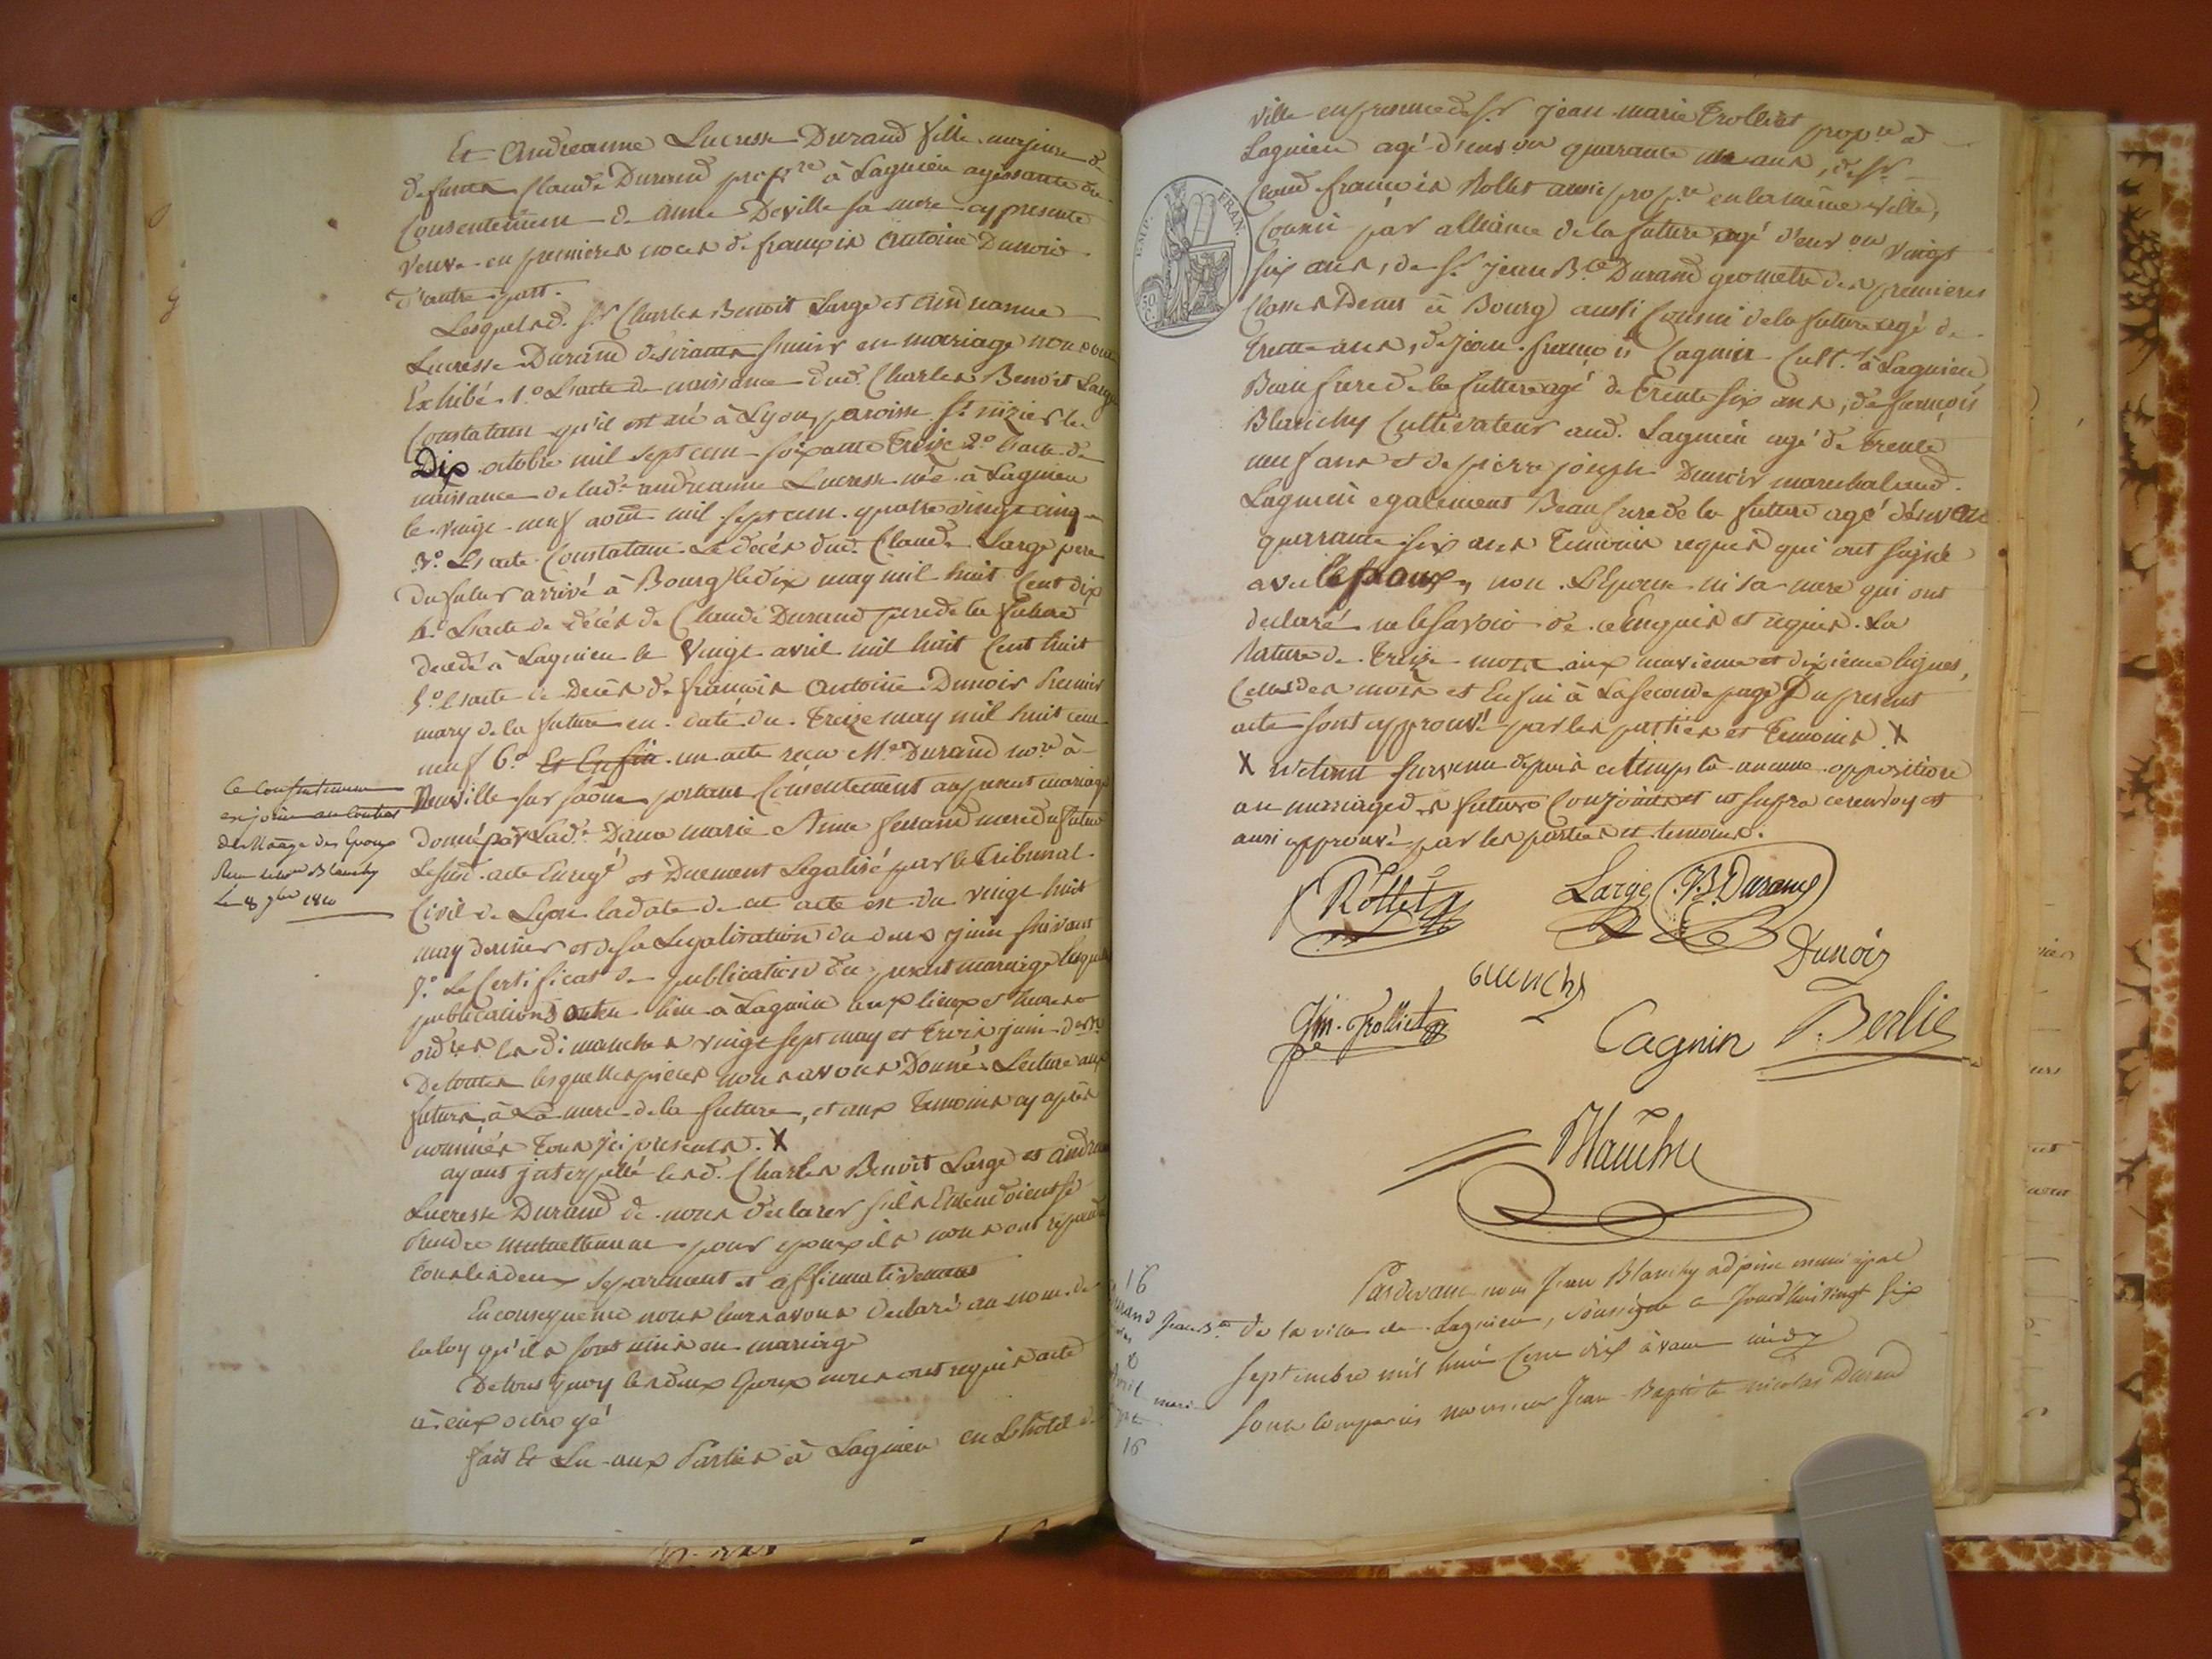 Et Andreanne Lucresse Durand fille majeure de
defunts Claude Durand prop.re à Lagnieu agissante du
Consentement de Anne Deville sa mere cy presente
veuve en premieres noces de françois Antoine Dunoir
d'autre part.
Lesquels d. Sr Charles Benoit Large et Andreanne
Lucresse Durand desirants s'unir en mariage nous ont
Exhibé 1.o L'acte de naissance dud. Charles Benoit Large
Constatant qu'il est né à Lyon paroisse St. nizier le
Dix octobre mil sept cent soixante Treize 2.o L'acte de
naissance de lade andreanne Lucresse née à Lagnieu
le vingt neuf août mil sept cent quatre vingt cinq
3.o L'acte Constatant Le decés dud. Claude Large pere
du futur arrivé à Bourg le dix may mil huit Cent dix
4.o L'acte de decés de Claude Durand pere de la future
decedé à Lagnieu le Vingt avril mil huit Cent huit
5.o l'acte de Decès de françois Antoine Dunoir Premier
mary de la future en datte du Treize may mil huit cent
neuf 6.o Et Enfin un acte recu Me. Durand no.re à
Neuville sur saône portant Consentement au present mariage
donné par Lad.e Dame marie Aime ferrand mere du futur
Lesud. acte Enregé et Duement Legalisé par le Tribunal
Civil de Lyon la date de cet acte est du vingt huit
may dernier et de sa Legalisation du deux juin suivant
7.o Le Certificat de publication du present mariage lesquelles
publications ont eu lieu à Lagnieu aux lieux et heures
ord.res les dimanches vingt sept may et trois juin der.er
De toutes lesquelles pieces nous avons Donné Lecture aux
futurs à La mere de la future, et aux Temoins cy après
nommés Tous ici presents. X
ayant interpellé lesd. Charles Benoit Large et Andreanne
Lucresse Durand de nous declarer s'ils Entendoient se
Prendre mutuellement pour epoux ils nous ont repondu
tous les deux separement et affirmativement
En consequence nous leurs avons declaré au nom de
la loy qu'ils sont unis en mariage
De tous quoy les deux Epoux nous ont requis acte
à eux octroyé
fait Et Lu aux Parties à Lagnieu en L'hôtel de
Ce Consentement
est joint au Contrat
de Mariage des Epoux
Reçu Blanchy
Le 8 7bre 1810
ville en presence de Sr. Jean marie Trolliet prop.re à
Lagnieu agé d'environ quarante ans, de Sr
Claud françois Rollet aussi prop.re en la même ville,
Cousin par alliance de la future agé d'environ vingt
six ans, de Sr. Jean B.te Durand geometre des premieres
Classes Demt à Bourg aussi Cousin de la future agé de
trente ans, de Jean françois Cagnin Cult.r à Lagnieu
Beau frere de la future agé de Trente six ans, de françois
Blanchy Cultivateur aud. Lagnieu agé de Trente
neuf ans et de pierre joseph Dunoir marechal aud.
Lagnieu egalement Beau frere de la future agé d'environ
quarante six ans Temoins requis qui ont signé
avec l'Epoux, non L'Epouse ni sa mere qui ont
declaré ne le savoir de ce Enquis et requis. La
Rature de Treize mots aux neuvieme et dixieme lignes,
Celles des mots et Enfin à La seconde page Du present
acte sont approuvé par les parties et Temoins X
X n'etant survenu depuis ce temps là aucune opposition
au mariage des futurs Conjoints et ce renvoy est
aussi approuvé par les parties et temoins.
Rollet Large J.B. Durand
Dunoir
Guenchy
Jm. Trolliet Cagnin Berlie
Blanchy
16
Durand Jean B.te
mari
16
Pardevant nous Jean Blanchy adjoint municipal
de la ville de Lagnieu, soussigné ce Jourd'hui vingt six
septembre mil huit Cent dix avant midy
sont Comparus monsieur Jean Baptiste nicolas Durand
50 C.
EMP. FRAN.